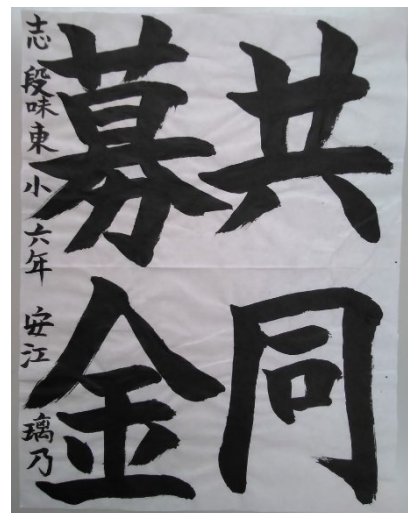 共同
募金
志段味東小六年 安江 璃乃